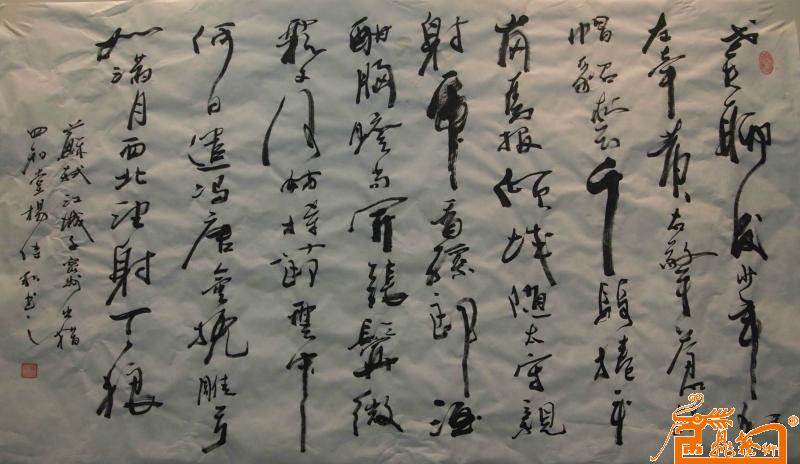 老夫聊发少年狂
左牵黄右擎苍锦
帽貂裘千骑卷平
岗为报倾城随太守亲
射虎看孙郎酒
酣胸胆尚开张鬓微
霜又何妨持节云中
何日遣冯唐会挽雕弓
如满月西北望射天狼
蘇轼江城子密州出猎
四知堂楊
书